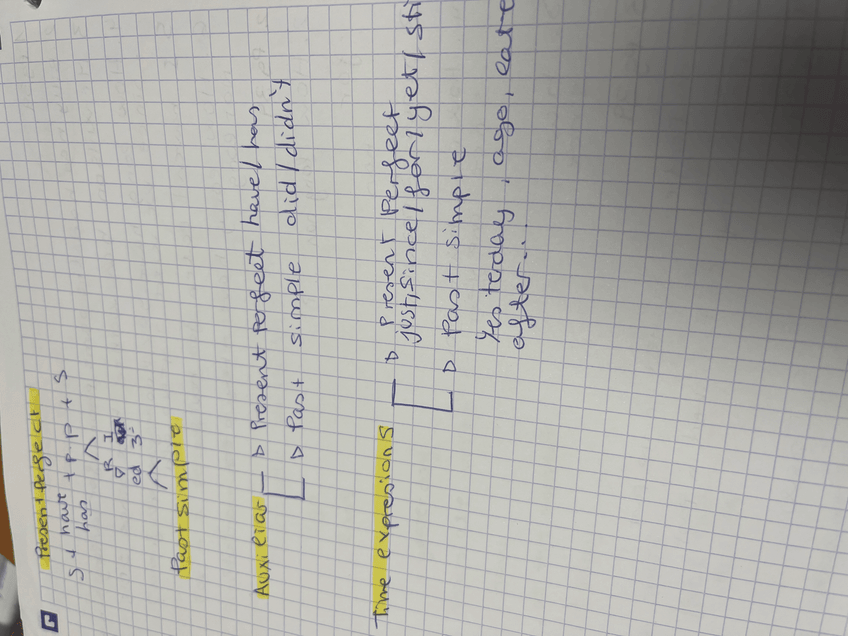 Present perfect
S + have + P P + S
has
R I
ed 3ª
Past simple
Auxiliar
Present Perfect have/has
Past simple did/didn't
Time expresions
Present Perfect
just/since/for/yet/sti
Past simple
Yesterday, ago,
after...